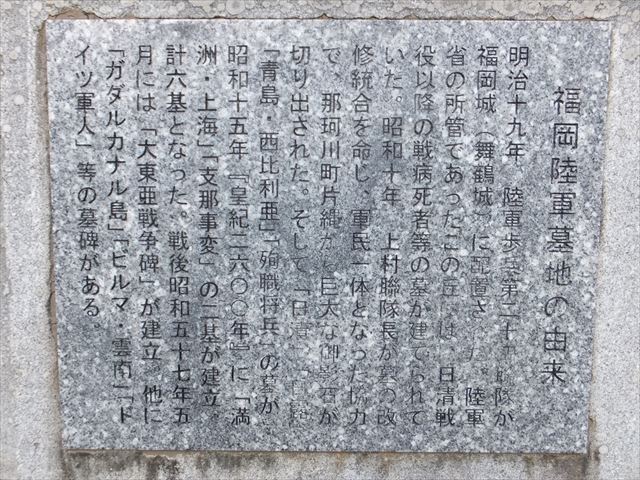 福岡陸軍墓地の由来
明治十九年 陸軍歩兵第二十四聯隊が
福岡城(舞鶴城)に配置された。陸軍
省の所管であったこの丘には、日清戦
役以降の戦病死者等の墓が建てられて
いた。昭和十年 上村聯隊長が墓の改
修統合を命じ、軍民一体となった協力
で、那珂川町片縄から巨大な御影石が
切り出された。そして「日清」「日露」
「青島・西比利亜」「殉職将兵」の墓が、
昭和十五年『皇紀二六〇〇年』に「満
洲・上海」「支那事変」の二基が建立。
計六基となった。戦後昭和五十七年五
月には「大東亜戦争碑」が建立。他に
「ガダルカナル島」「ビルマ・雲南」「ド
イツ軍人」等の墓碑がある。